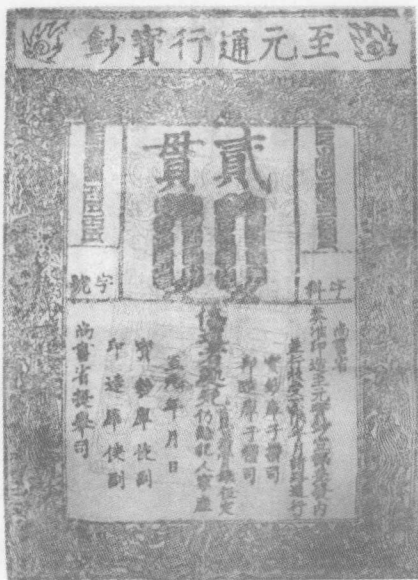 至元通行寶鈔
貳貫
字料
字號
尚書省
奏准印造至元寶鈔宣課差役內
並行收受不限年月諸路通行
寶鈔庫子攢司
印造庫子攢司
偽造者處死
首告者賞銀伍定
仍給犯人家產
至元年月日
寶鈔庫使副
印造庫使副
尚書省提舉司